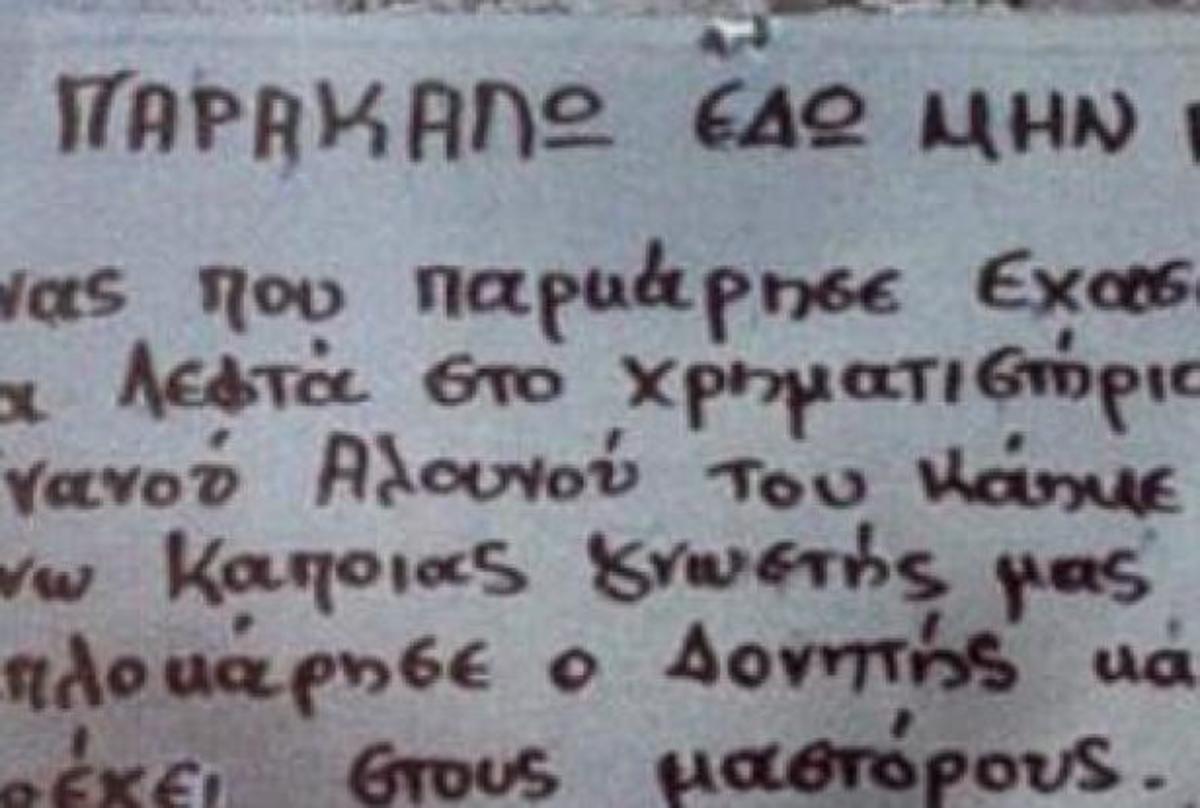 ΠΑΡΑΚΑΛΩ ΕΔΩ ΜΗΝ
νας που παρκάρησε Εχασε
α Λεφτά στο χρηματιστήριο
νανού Αλουνού του κάηκε
νω Καποιας γνωστής μας
πλοκάρησε ο Δονητής κά
ρέχει στους μαστόρους.